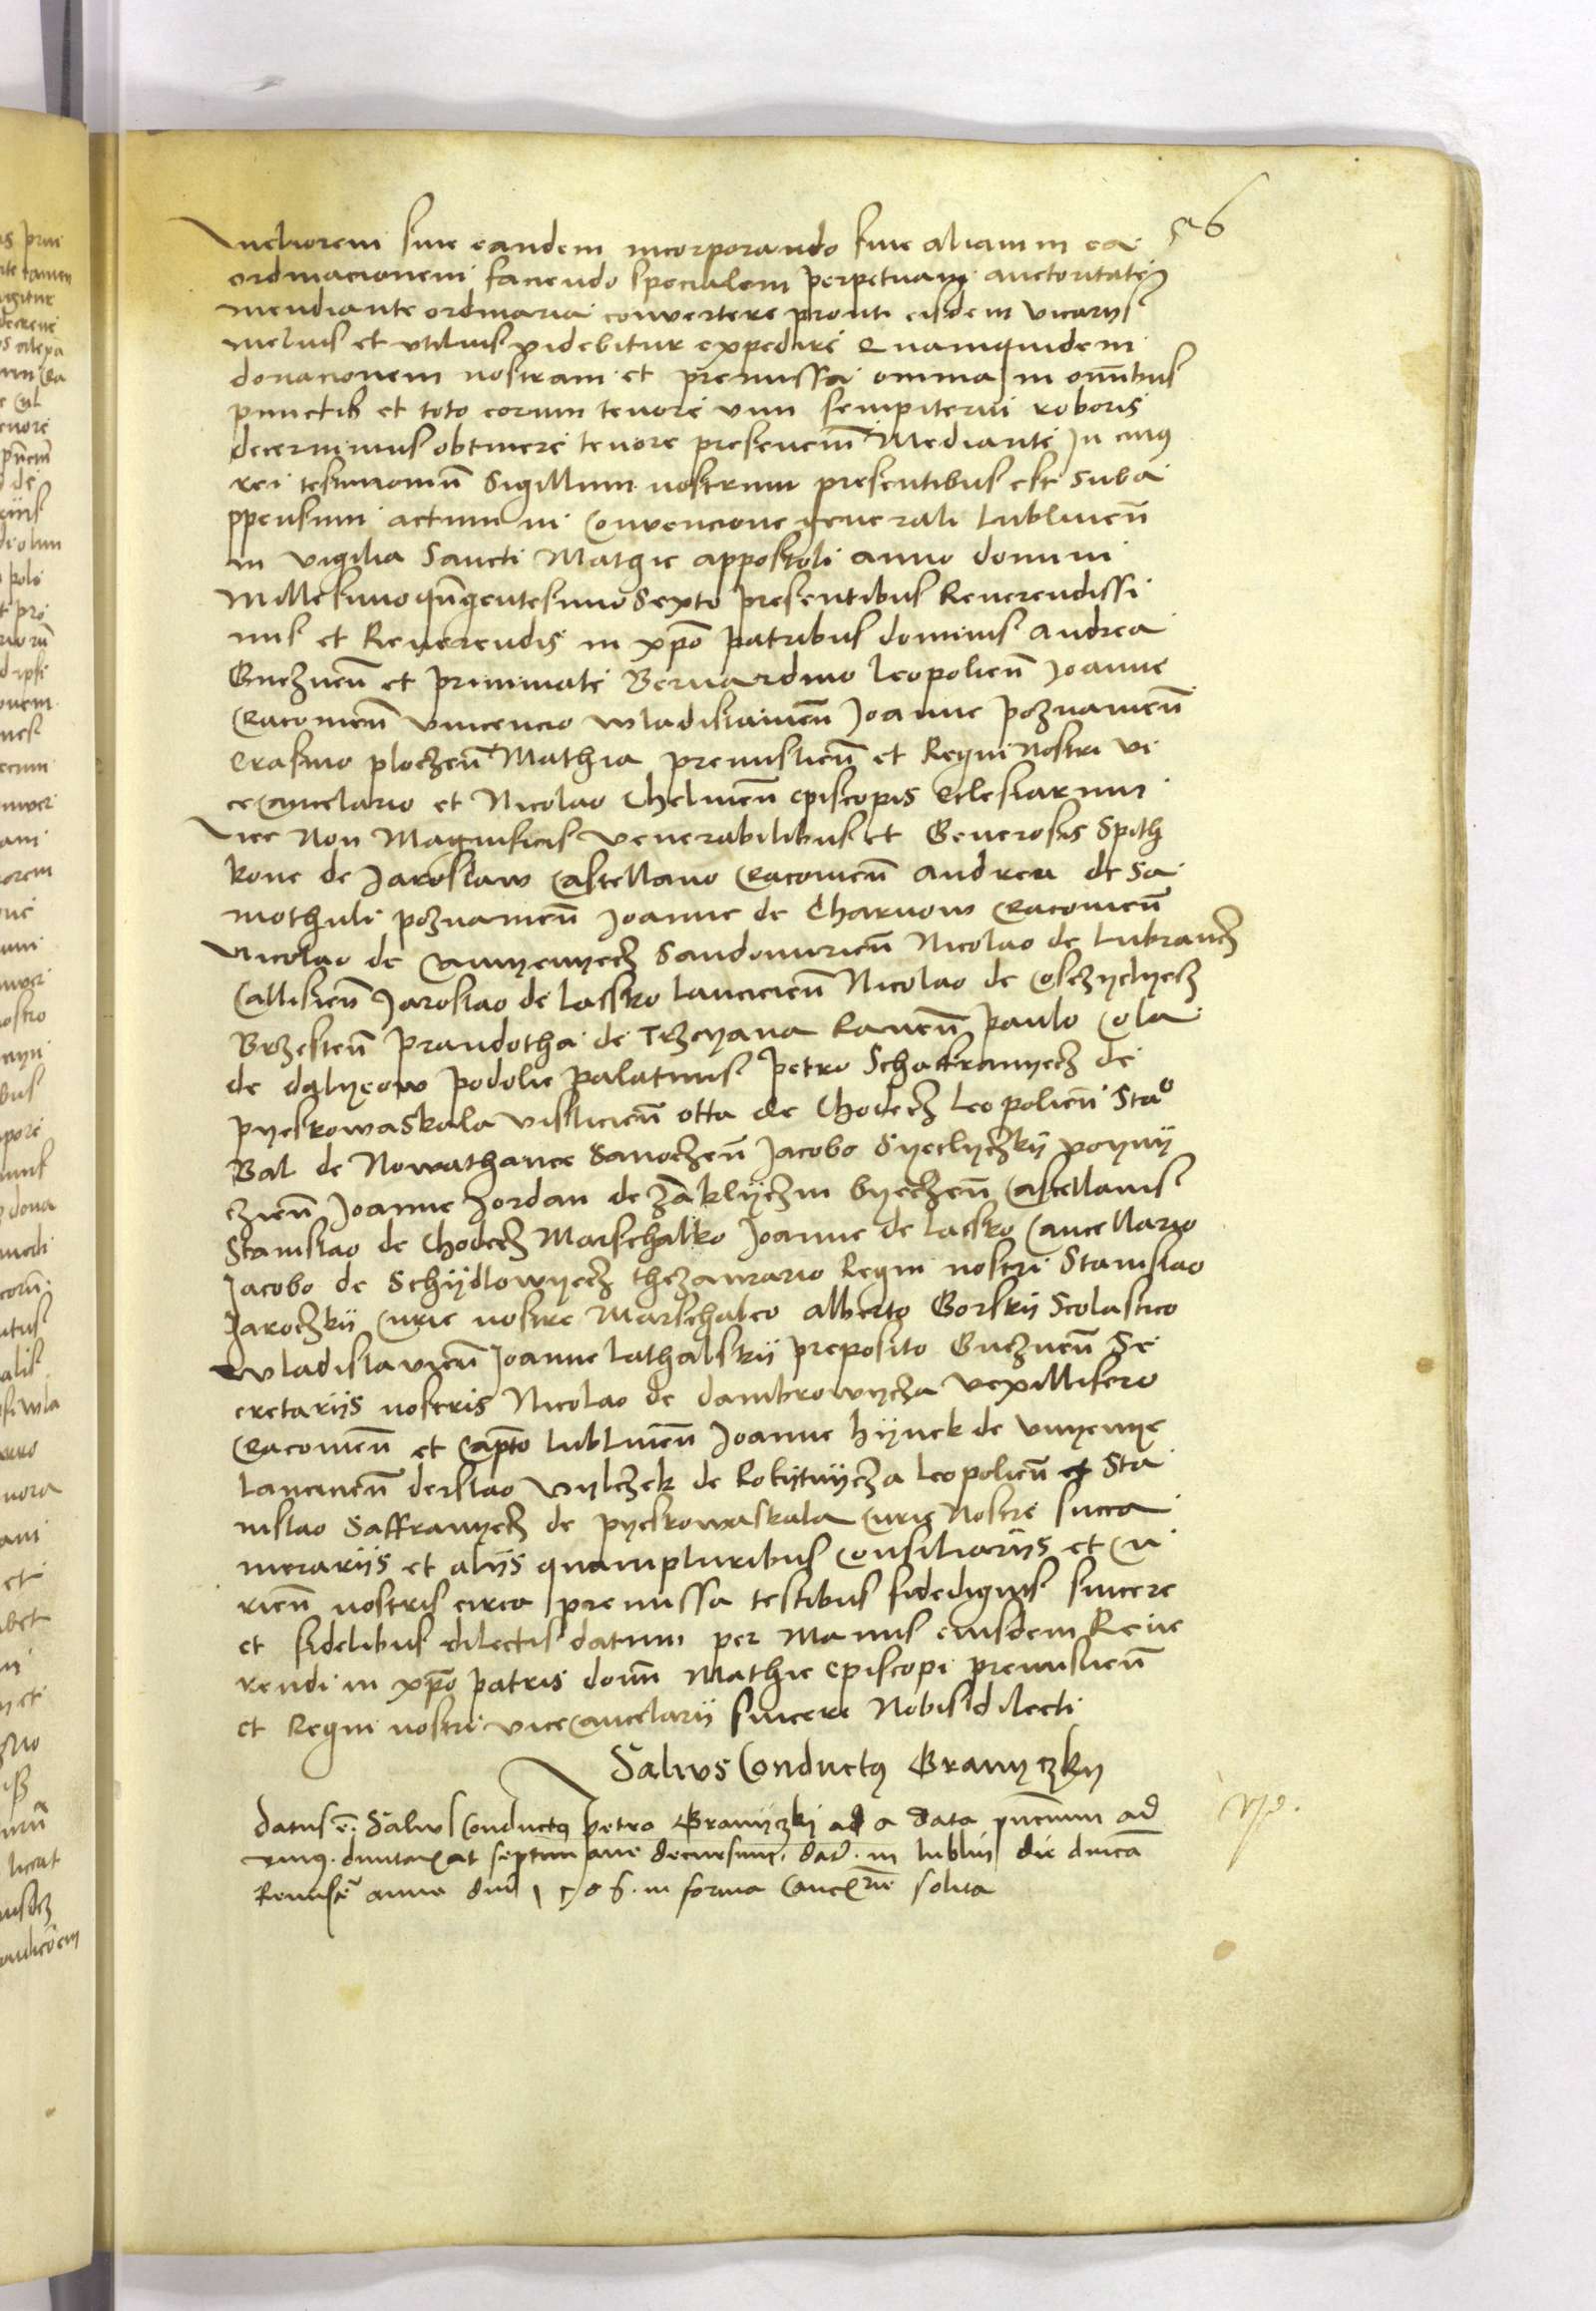 56
meliorem siue eandem incorporando siue aliam in ea
ordinacionem faciendo specialem perpetuam auctoritate
mendiante ordinaria conuertere prout eisdem vicarijs
melius et vtilius videbitur expedire Quamquidem
donacionem nostram et premissa omnia in omnibus
punctis et toto eorum tenore vim sempiterni roboris
decernimus obtinere tenore presencium Mediante In cuius
rei testimonium Sigillum nostrum presentibus est Suba
ppensum actum in Conuencione generali Lublinen
in vigilia Sancti Mathie appostoli anno domini
Millesimo quingentesimo Sexto presentibus Reuerendissi
mis et Reuerendis in xpo patribus dominis Andrea
Gneznen et primmate Bernardino Leopolien Joanne
Cracouien Vincencio Wladislauien Joanne poznanien
Erasmo ploczen Mathia premislien et Regni Nostri vi
cecancelario et Nicolao Chelmen Episcopis Eclesiarum
Nec Non Magnificis venerabilibus et Generosis Spith
kone de Jaroslaw Castellano Cracouien Andrea de Sa
mothuli poznanien Joanne de Charnow Cracouien
Nicolao de Camyenyecz Sandomirien Nicolao de Lubrancz
Callisien Jaroslao de Lassko Lancicien Nicolao de Cosczyelyecz
Brzesten prandotha de Trzcyana Rauen paulo Cola
de dalyeow podolie palatinis petro Schaffranyecz de
pyeskowaskala vislicien Otta de Chodecz Leopolien Sta
Bal de Nowathance Sanoczen Jacobo Syeclyczkij voynij
czien Joanne Jordan de Zaklyczin byeczen Castellanis
Stanislao de Chodecz Marschalko Joanne de Lassko Cancellario
Jacobo de Schijdlowyecz thezaurario Regni nostri Stanislao
Jaroczkij Curie nostre Marschalco Alberto Gorskij Scolastico
Wladislauien Joanne Lathalskij preposito Gneznen Se
cretarijs nostris Nicolao de dambrowycza vexillifero
Cracouien et Capto Lublinen Joanne hijnek de vnyemye
Lancicien derslao vylczek de Rokijtnijcza Leopolien et Sta
nislao Saffranyecz de pyeskowaskala Curie Nostre succa
merarijs et alijs quampluribus Consiliarijs et Cu
rien nostris circa premissa testibus fidedignis sincere
et fidelibus dilectis datum per Manus eiusdem Reue
rendi in xpo patris domini Mathie Episcopi premislien
et Regni nostri vicecancelarij sincere Nobis dilecti
Saluus Conductus Granyczky
datus e. Saluus Conductus petro Granijczkj a data pncium ad
vnius duntaxat septimane decursum. dat. in lublin die dnica
Reminiscere anno dni 1506. in forma Cancrie solita